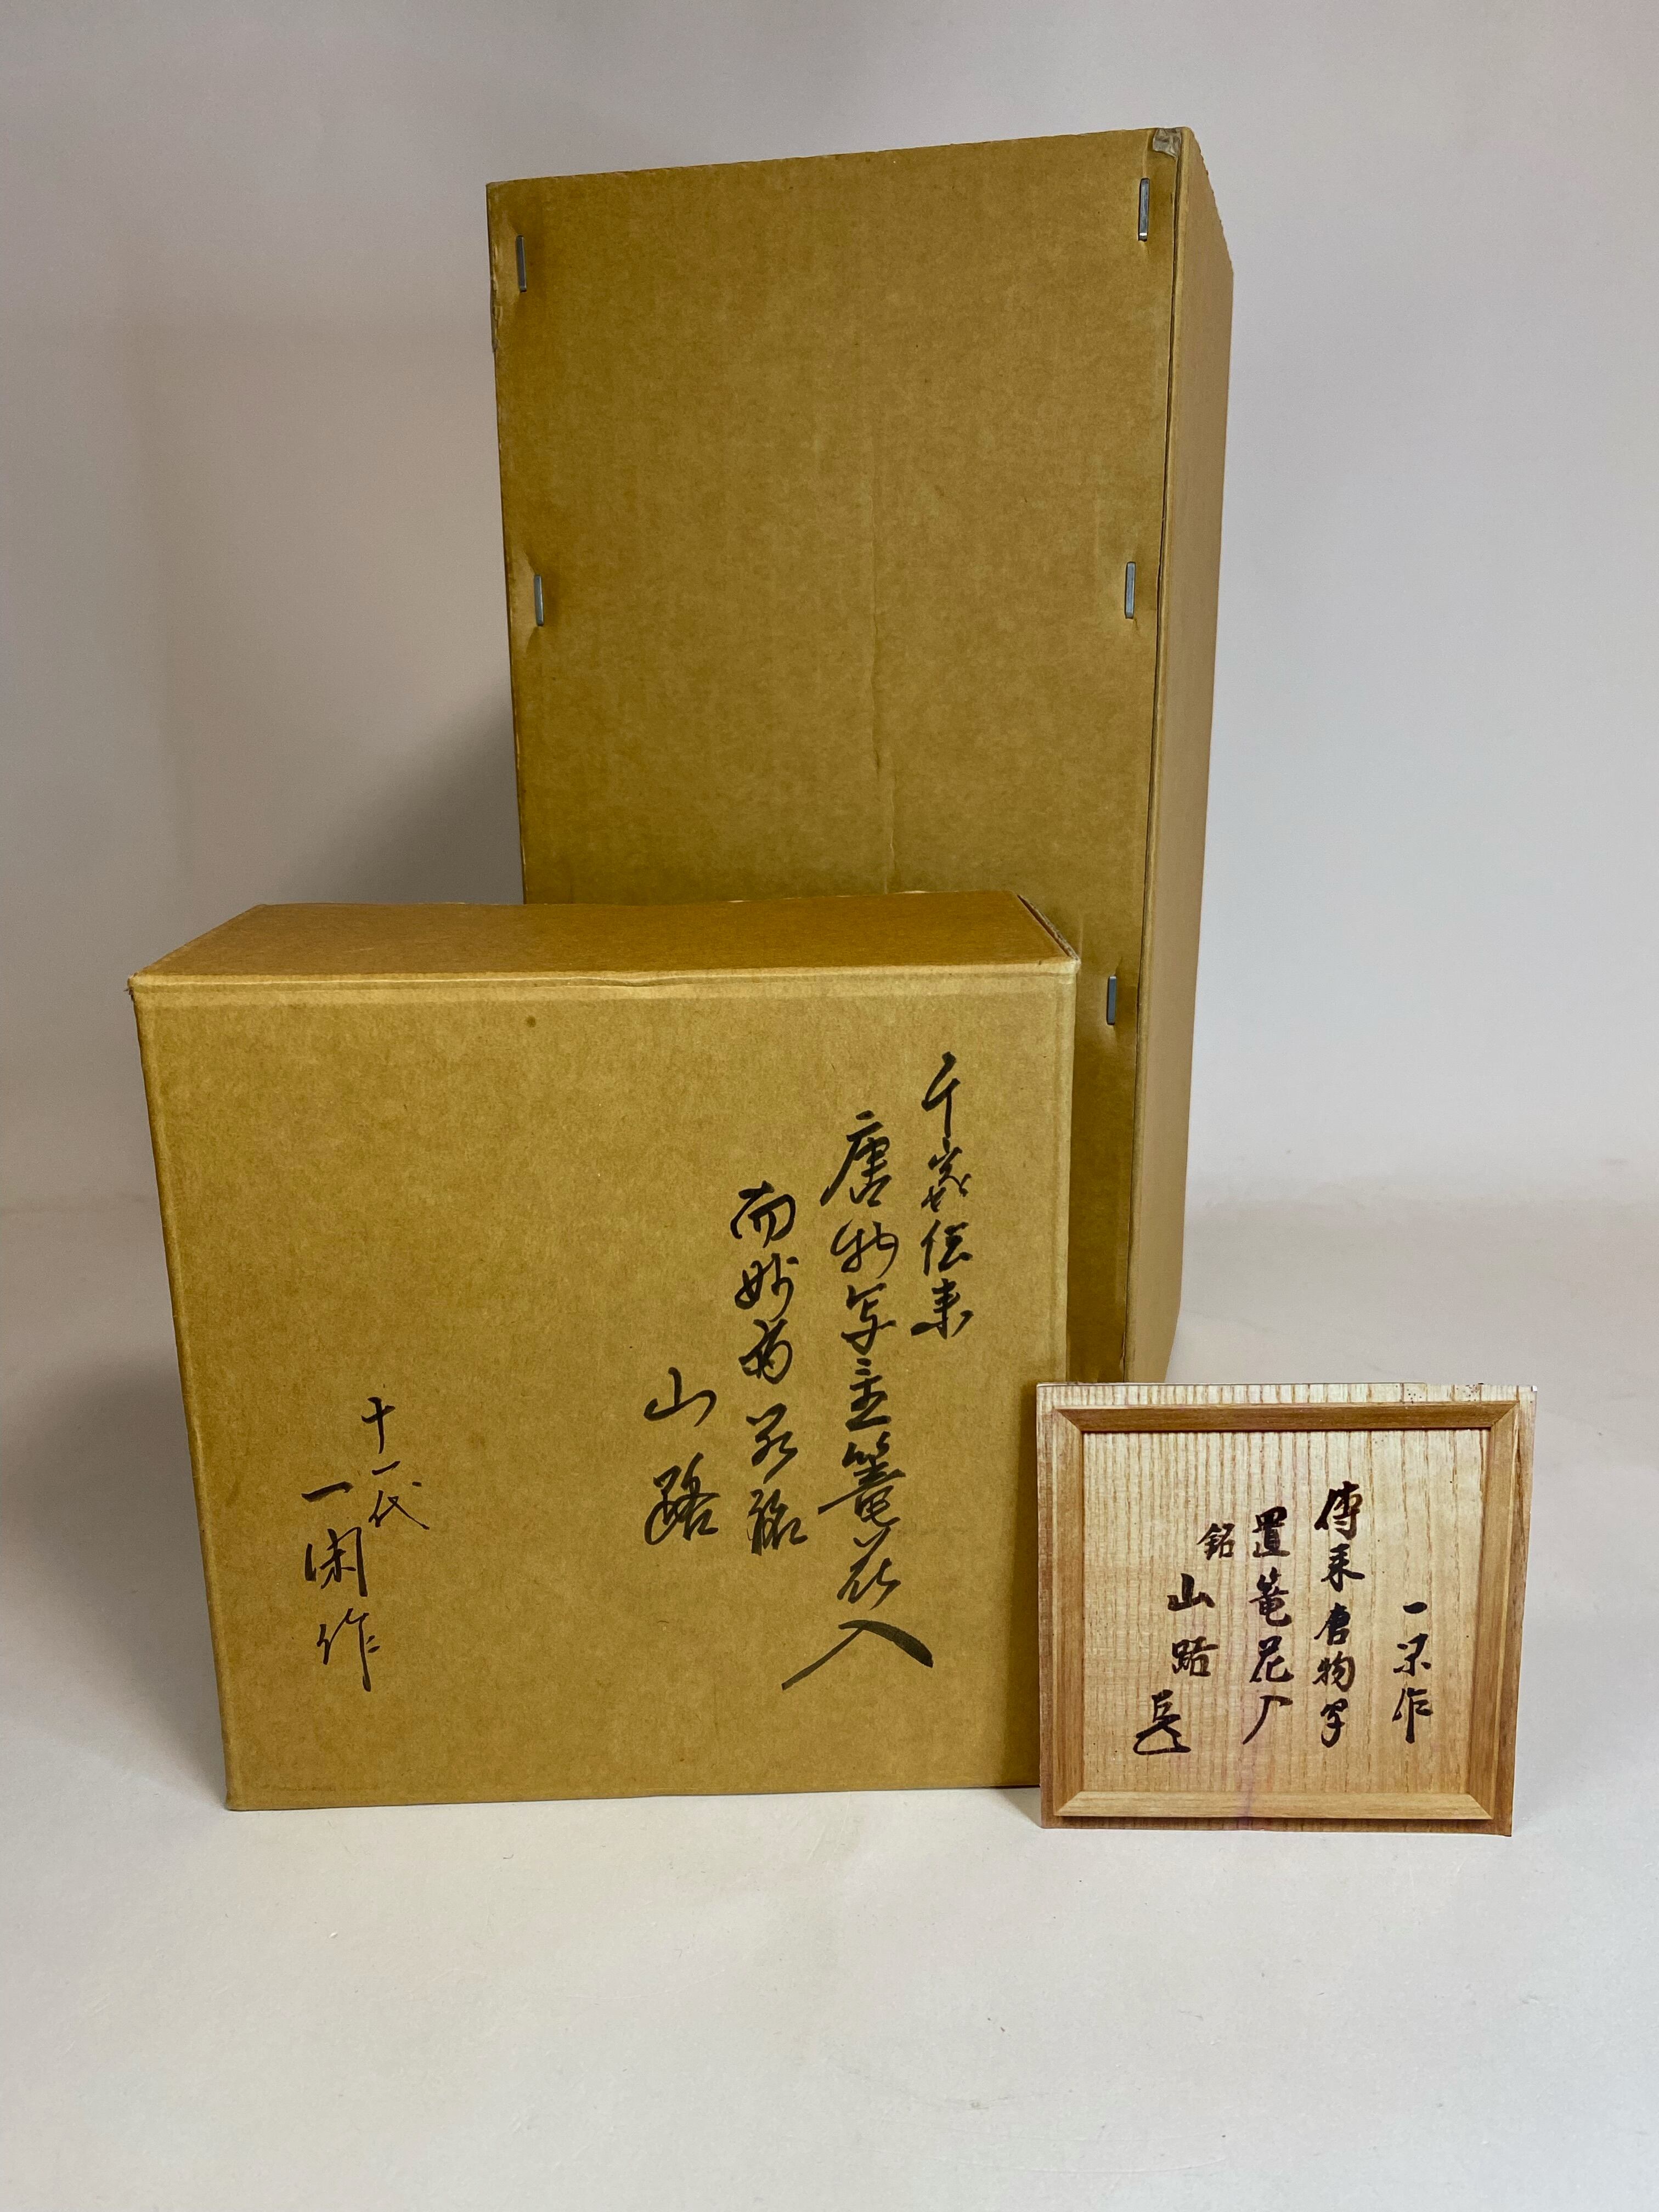 千家伝来
唐物写置籠花入
而妙斎宗匠銘
山路
十一代
一閑作
一閑作
傳来唐物写
置籠花入
銘
山路